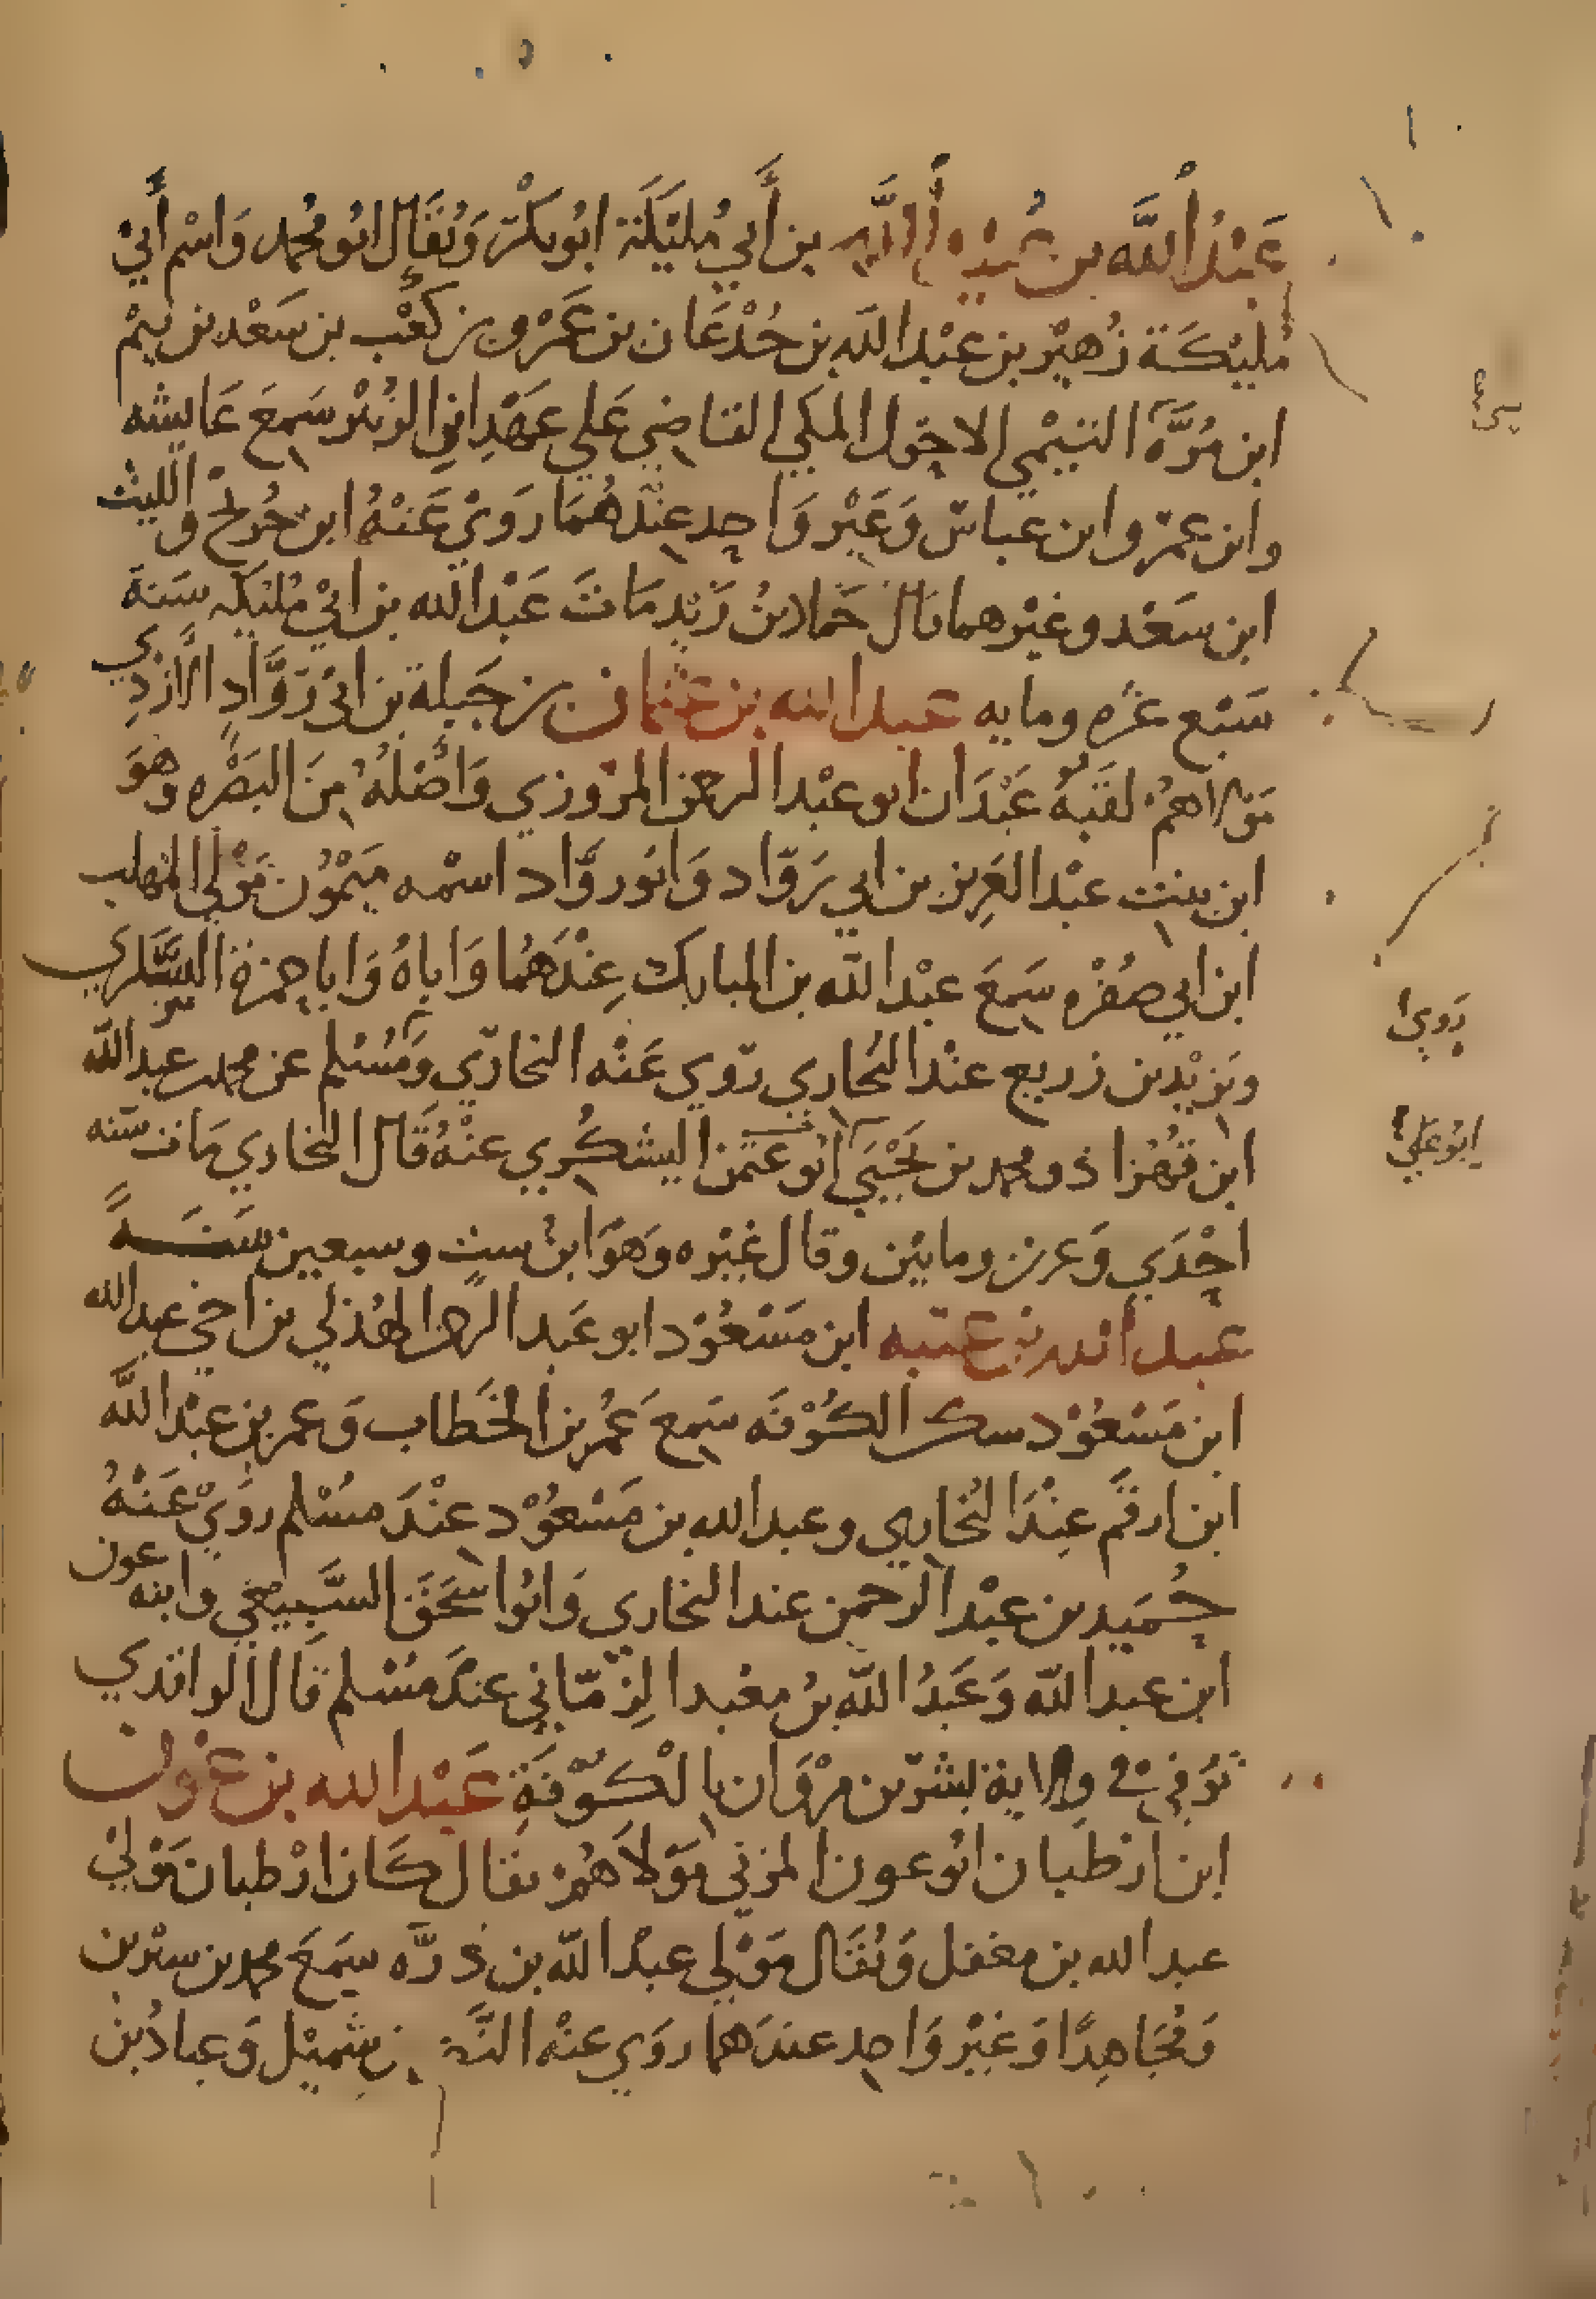 عَبْدُ اللَّه بن عُبَيْد اللَّه بن أَبي مُلَيْكَة ابُو بكْر وَيُقَال ابُو مُحمد وَاسْم أَبيْ
مُليْكَة زُهَيْر بن عَبْد الله بن جُدْعَان بن عَمْرو بن كَعْب بن سَعْد بن تيْم
ابن مُرَّة التيْمي الاحول المكي القاضي عَلي عَهْدِ ابن الزبَيْر سَمعَ عَايشه
وابن عمَر وابن عَباس وَغَيْر وَاحِد عِنْدَهُمَا رَوَيْ عَنْهُ ابن جُرَيْج والليث
ابن سَعْد وغَيْرهما قال حَماد بنُ زَيْد مَاتَ عَبْد الله بن ابيْ مُليْكَه سَنة
سَبْع عشره ومايه عبد الله بن عثمان بن جَبلة بن ابيْ رَوَّادِ الأَزدِي
مَوْلاهمْ لقبهُ عَبْدَان ابو عبْد الرحمن المرْوَزي وَأصْلهُ مِنَ البَصْره وهوَ
ابن بنت عبْد العَزِيز بن ابي رَوّاد وَابُو روَّاد اسْمه مَيْمُون مَوْلي المهلب
ابن ابي صفْره سَمعَ عبْد الله بن المبارك عِنْدَهُمَا وَاباهُ وَابا حمزة السُّكري
ويَزيْد بن زريع عنْد البُخاري رَوي عَنْه البخاري وَمُسْلم عن محمد بن عبد الله
ابن قُهْزاذ ومحمد بن يَحْيَي ابُو عَمْرو اليشكُري عنْهُ قَال البخاري مَات سَنه
احْدَي وَعشرين ومايتَيْن وقال غيْره وَهوَ ابنُ ست وسبعين سَنَةً
عبد الله بن عتبه ابن مَسْعُوْد ابو عَبد الرحمن الهُذلي بن اخي عبد الله
ابن مَسْعُوْد سكن الكُوْفَه سَمعَ عُمَر بن الخَطاب وَعمر بن عبْد اللَّه
ابن ارقَم عِنْدَ البُخاري وعبد الله بن مَسْعُوْد عنْدَ مسْلم رويْ عَنْهُ
حُمَيد بن عبْد الرحمن عند البخاري وَابُوا سْحَقَ السَّبيعي وابنه عون
ابن عبد الله وَعَبدُ الله بنُ معْبد الزِمّاني عندَ مُسْلم قَال الواقدي
تُوَفي في ولاية بشْر بن مرْوَان بالْكُوْفَةِ عَبْد الله بن عَوْن
ابن ارْطبان ابُو عون المزني مَوْلاهُمْ يقال كَان ارْطبان مَوْليْ
عبد الله بن مغفل وَيُقَال مَوْلي عبْد الله بن دُرَّه سَمعَ محمد بن سيْرين
وَمُجَاهِدًا وَغيْر وَاحِد عندَهما روَي عنْه النَّضر بن شميْل وَعبادُ بن
رَوي
ابُو عَلي